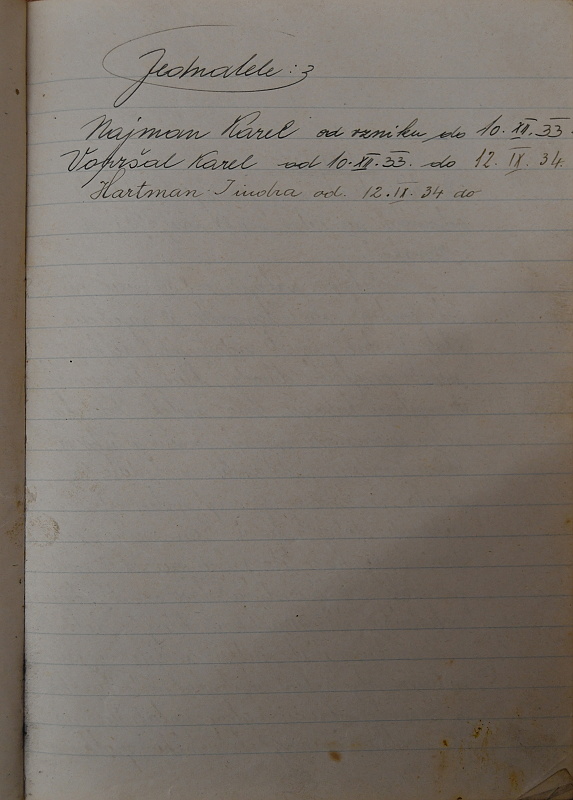 Jednatele:
Najman Karel od vzniku do 10. XII. 33.
Vopršal Karel od 10. XII. 33. do 12. IX. 34.
Hartman Jindra od. 12. IX. 34 do